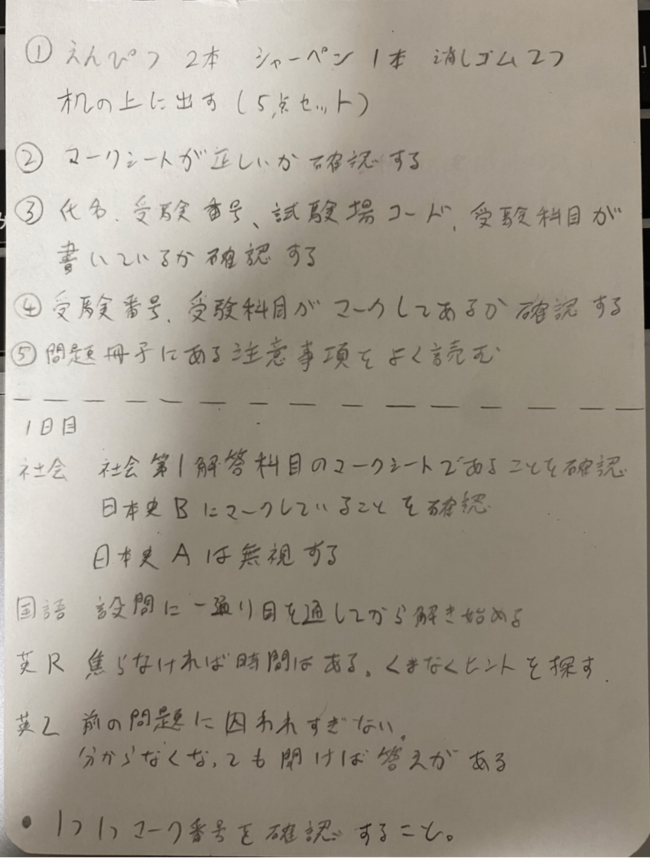 ① えんぴつ 2本 シャーペン 1本 消しゴム2つ
机の上に出す(5点セット)
② マークシートが正しいか確認する
③ 氏名、受験番号、試験場コード、受験科目が
書いているか確認する
④ 受験番号、受験科目がマークしてあるか確認する
⑤ 問題冊子にある注意事項をよく読む
1日目
社会 社会第1解答科目のマークシートであることを確認
日本史Bにマークしていることを確認
日本史Aは無視する
国語 設問に一通り目を通してから解き始める
英R 焦らなければ時間はある。くまなくヒントを探す.
英L 前の問題に囚われすぎない。
分からなくなっても聞けば答えがある
● 1つ1つマーク番号を確認すること。